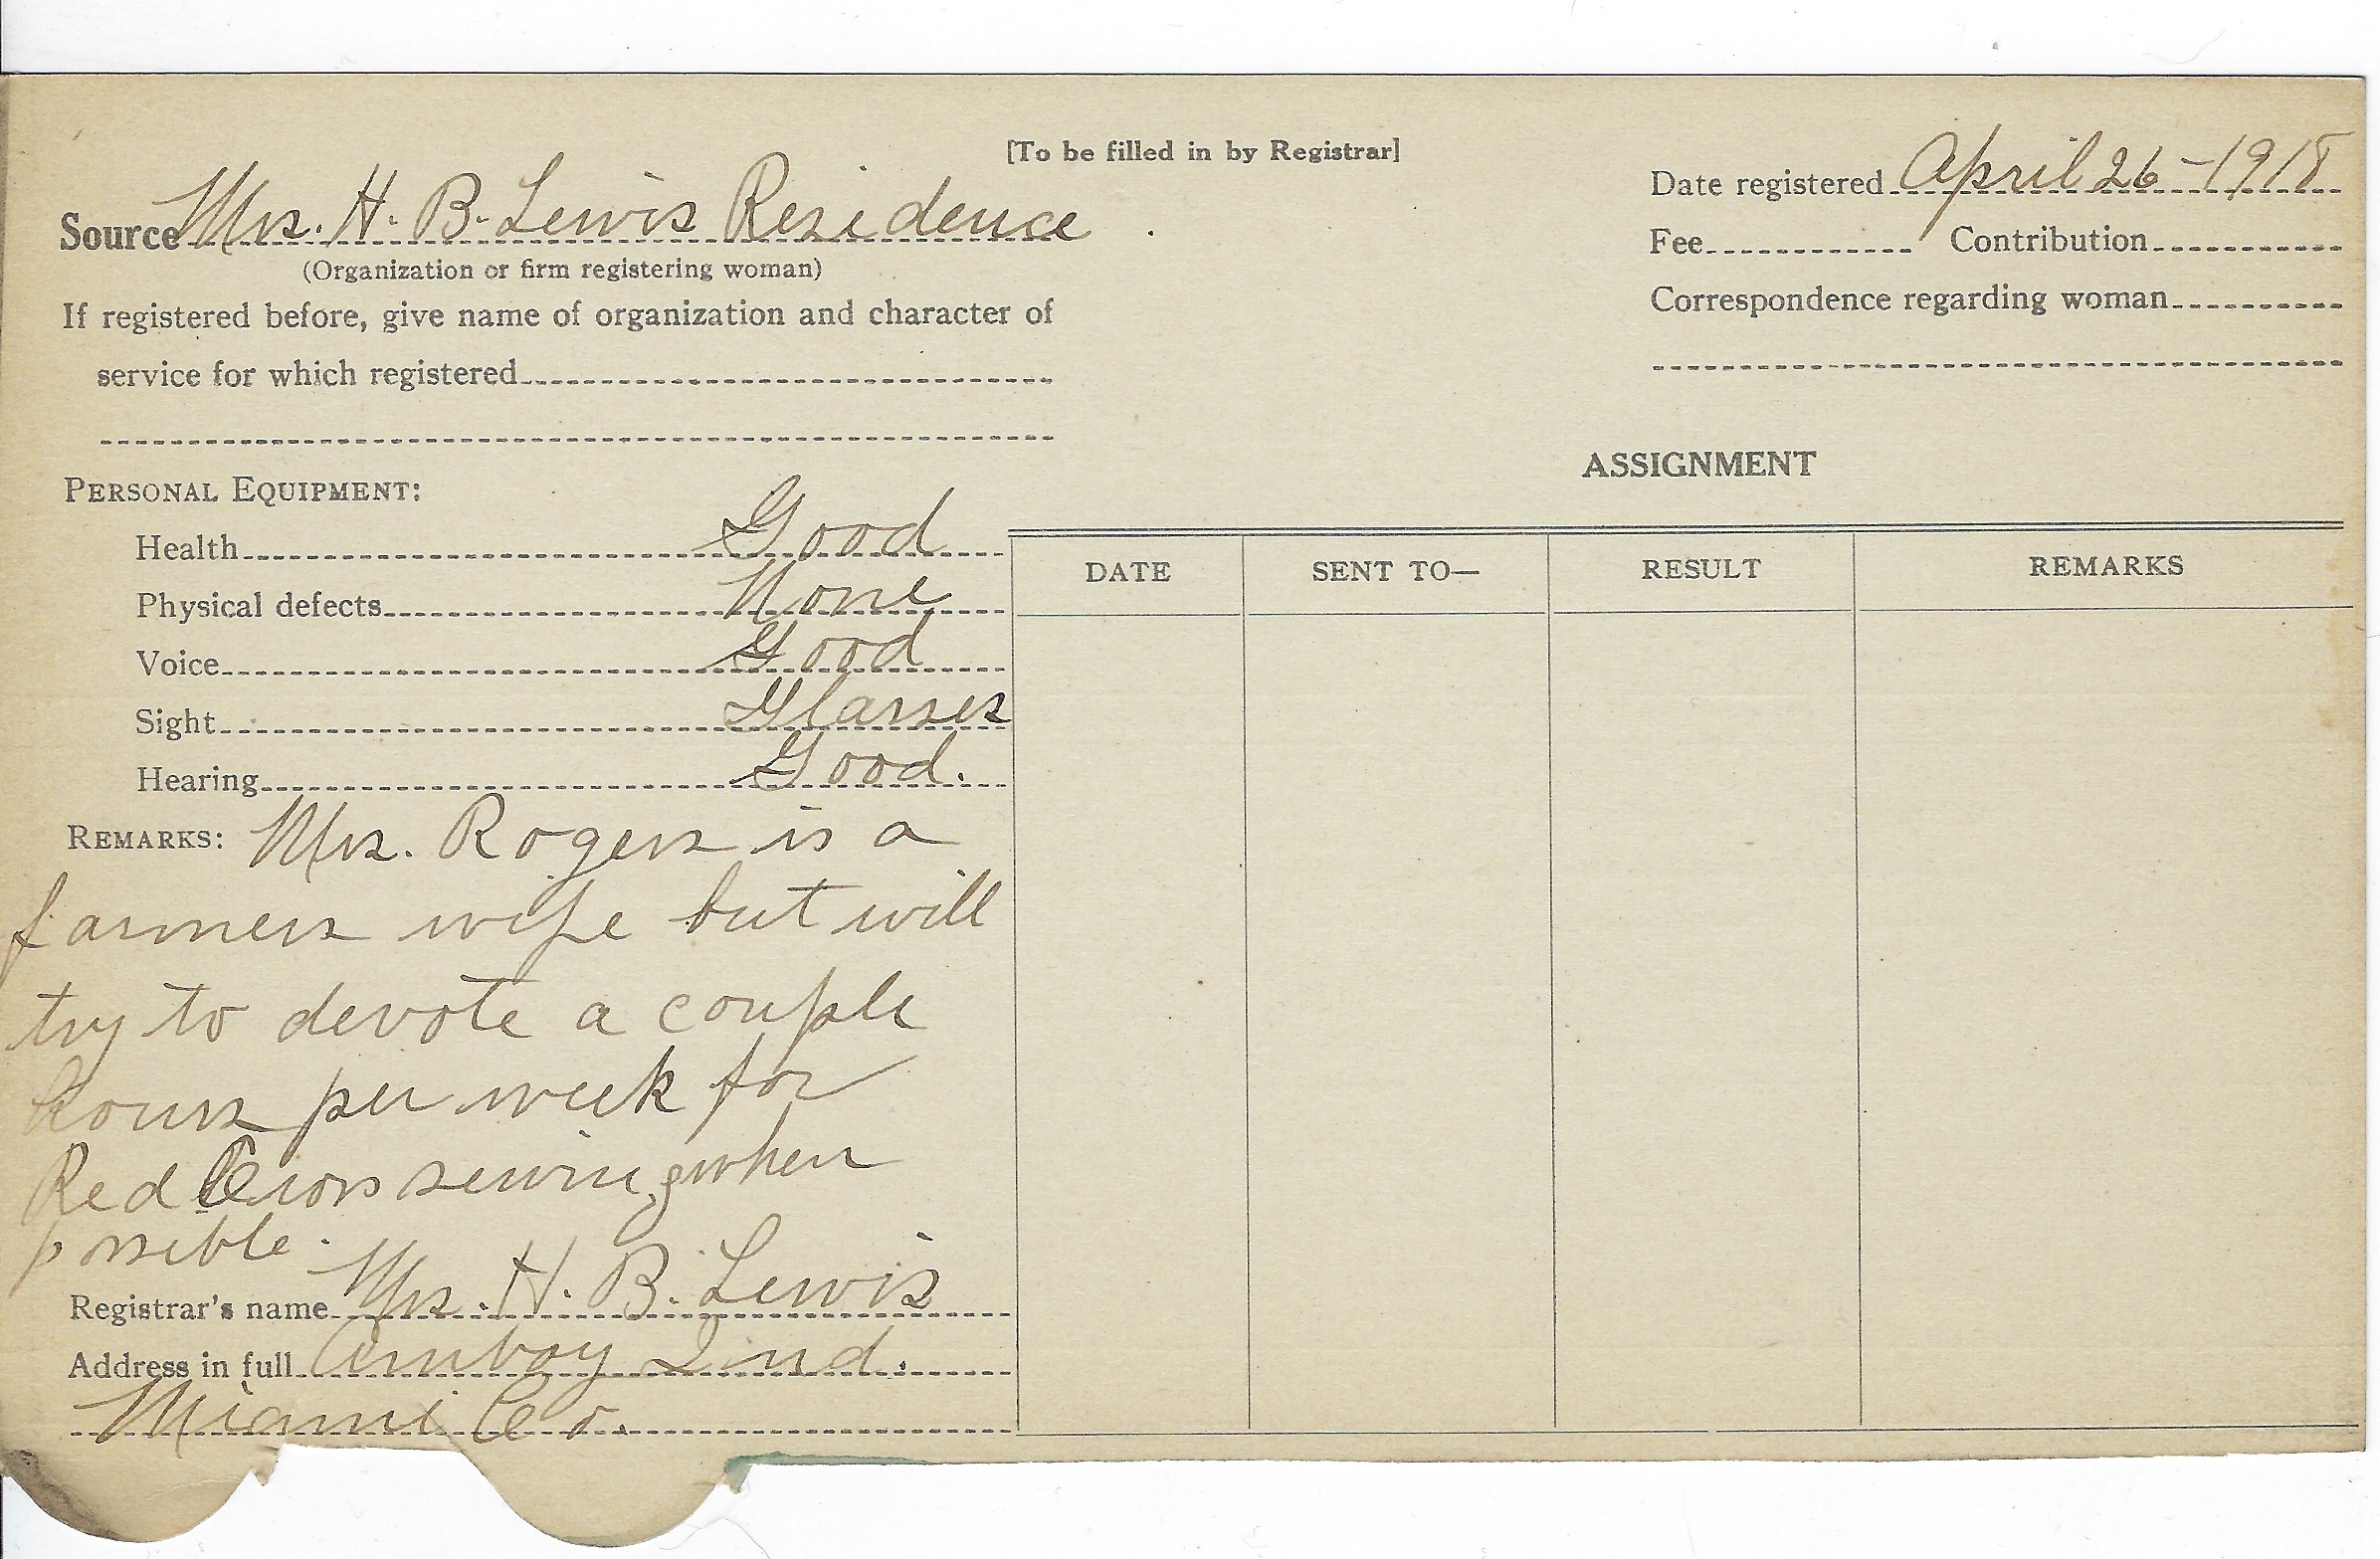 [To be filled in by Registrar]
Source Mrs. H. B. Lewis Residence
(Organization or firm registering woman)
If registered before, give name of organization and character of
service for which registered
Date registered April 26-1918
Fee Contribution
Correspondence regarding woman
PERSONAL EQUIPMENT:
Health Good
Physical defects None
Voice Good
Sight Glasses
Hearing Good.
REMARKS: Mrs. Rogers is a
farmers wife but will
try to devote a couple
hours per week for
Red Cross sewing when
possible.
Registrar's name Mrs. H. B. Lewis
Address in full Amboy Ind.
Miami Co.
ASSIGNMENT
DATE SENT TO— RESULT REMARKS